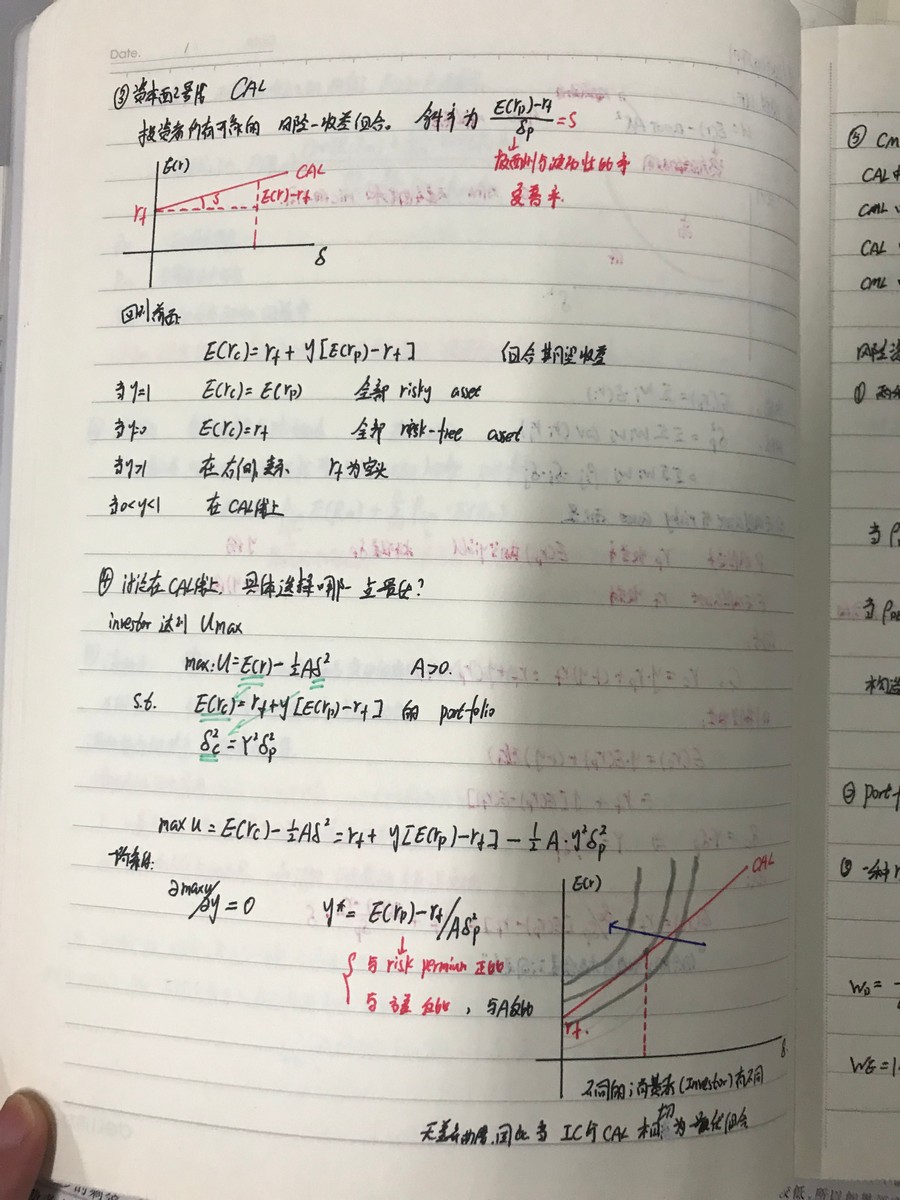 Date. /
③ 资本配置线 CAL
投资者所有可能的 风险-收益组合。 斜率为 E(rp)-rf / δp = S
报酬与波动性的率
E(r)
CAL
rf
S
E(r)-rf
δ
回到前面:
E(rc)=rf+y[E(rp)-rf] 组合期望收益
当y=1 E(rc)=E(rp) 全部 risky asset
当y=0 E(rc)=rf 全部 risk-free asset
当y>1 在右侧 rf为空头
当0<y<1 在CAL线上
④ 讨论在CAL线上 具体选择哪一点最优?
investor 达到 Umax
max: U=E(r)-½Aδ² A>0.
s.t. E(rc)=rf+y[E(rp)-rf] 的 port-folio
δc²=Y²δp²
max U=E(rc)-½Aδ²=rf+y[E(rp)-rf]-½A·y²δp²
一阶条件:
∂maxu/∂y=0 y*=E(rp)-rf/Aδp²
与 risk permium 正比
与 方差 反比, 与A反比
E(r)
CAL
rf.
δ.
不同的消费者(Investor)有不同
无差异曲线,因此当 IC与CAL 相切 为最优组合
⑤ CM
CAL
CML
CAL
CML
风险资
① 两
当ρ
当ρ
构造
② port-f
③ 一种r
WD=
WE=1